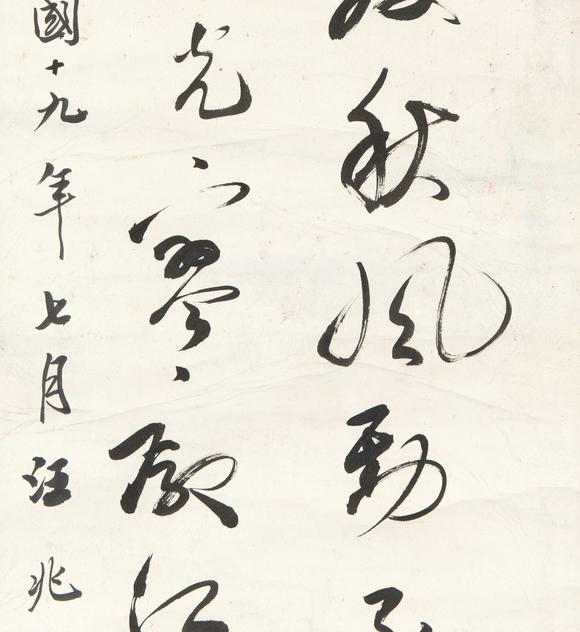 秋風動
光寥廓江
國十九年七月汪兆